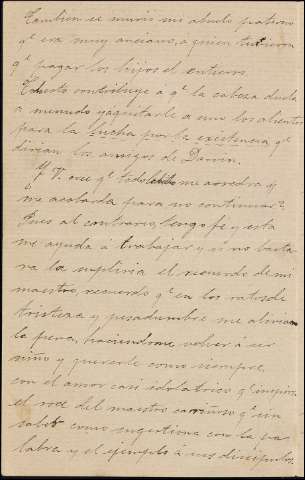 Tambien se murió mi abuelo paterno
qᵉ era muy anciano, a quien tuvieron
qᵉ pagar los hijos el entierro.
Todo esto contribuye á qᵉ la cabeza duela
a menudo y a quitarle a uno los alientos
para la lucha por la existencia qᵉ
dirian los amigos de Darwin.
Y V. cree qᵉ todo esto me arredra y
me acobarda para no continuar?
Pues al contrario, tengo fe y esta
me ayuda á trabajar y si no basta
ra la supliria el recuerdo de mi
maestro, recuerdo qᵉ en los ratos de
tristeza y pesadumbre me alivian
la pena, haciendome volver á ser
niño y quererle como siempre,
con el amor casi idolatrico qᵉ inspira
el roce del maestro cariñoso qᵉ sin
saber como sugestiona con la pa
labra y el ejemplo á sus discipulos.